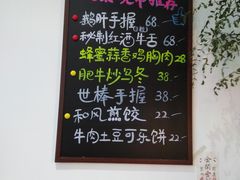 鹅肝手握 68
秘制红酒牛舌 68-
蜂蜜蒜香鸡胸肉 28-
肥牛炒乌冬 38-
世棒手握 38-
和风煎饺 22-
牛肉土豆可乐饼 22-